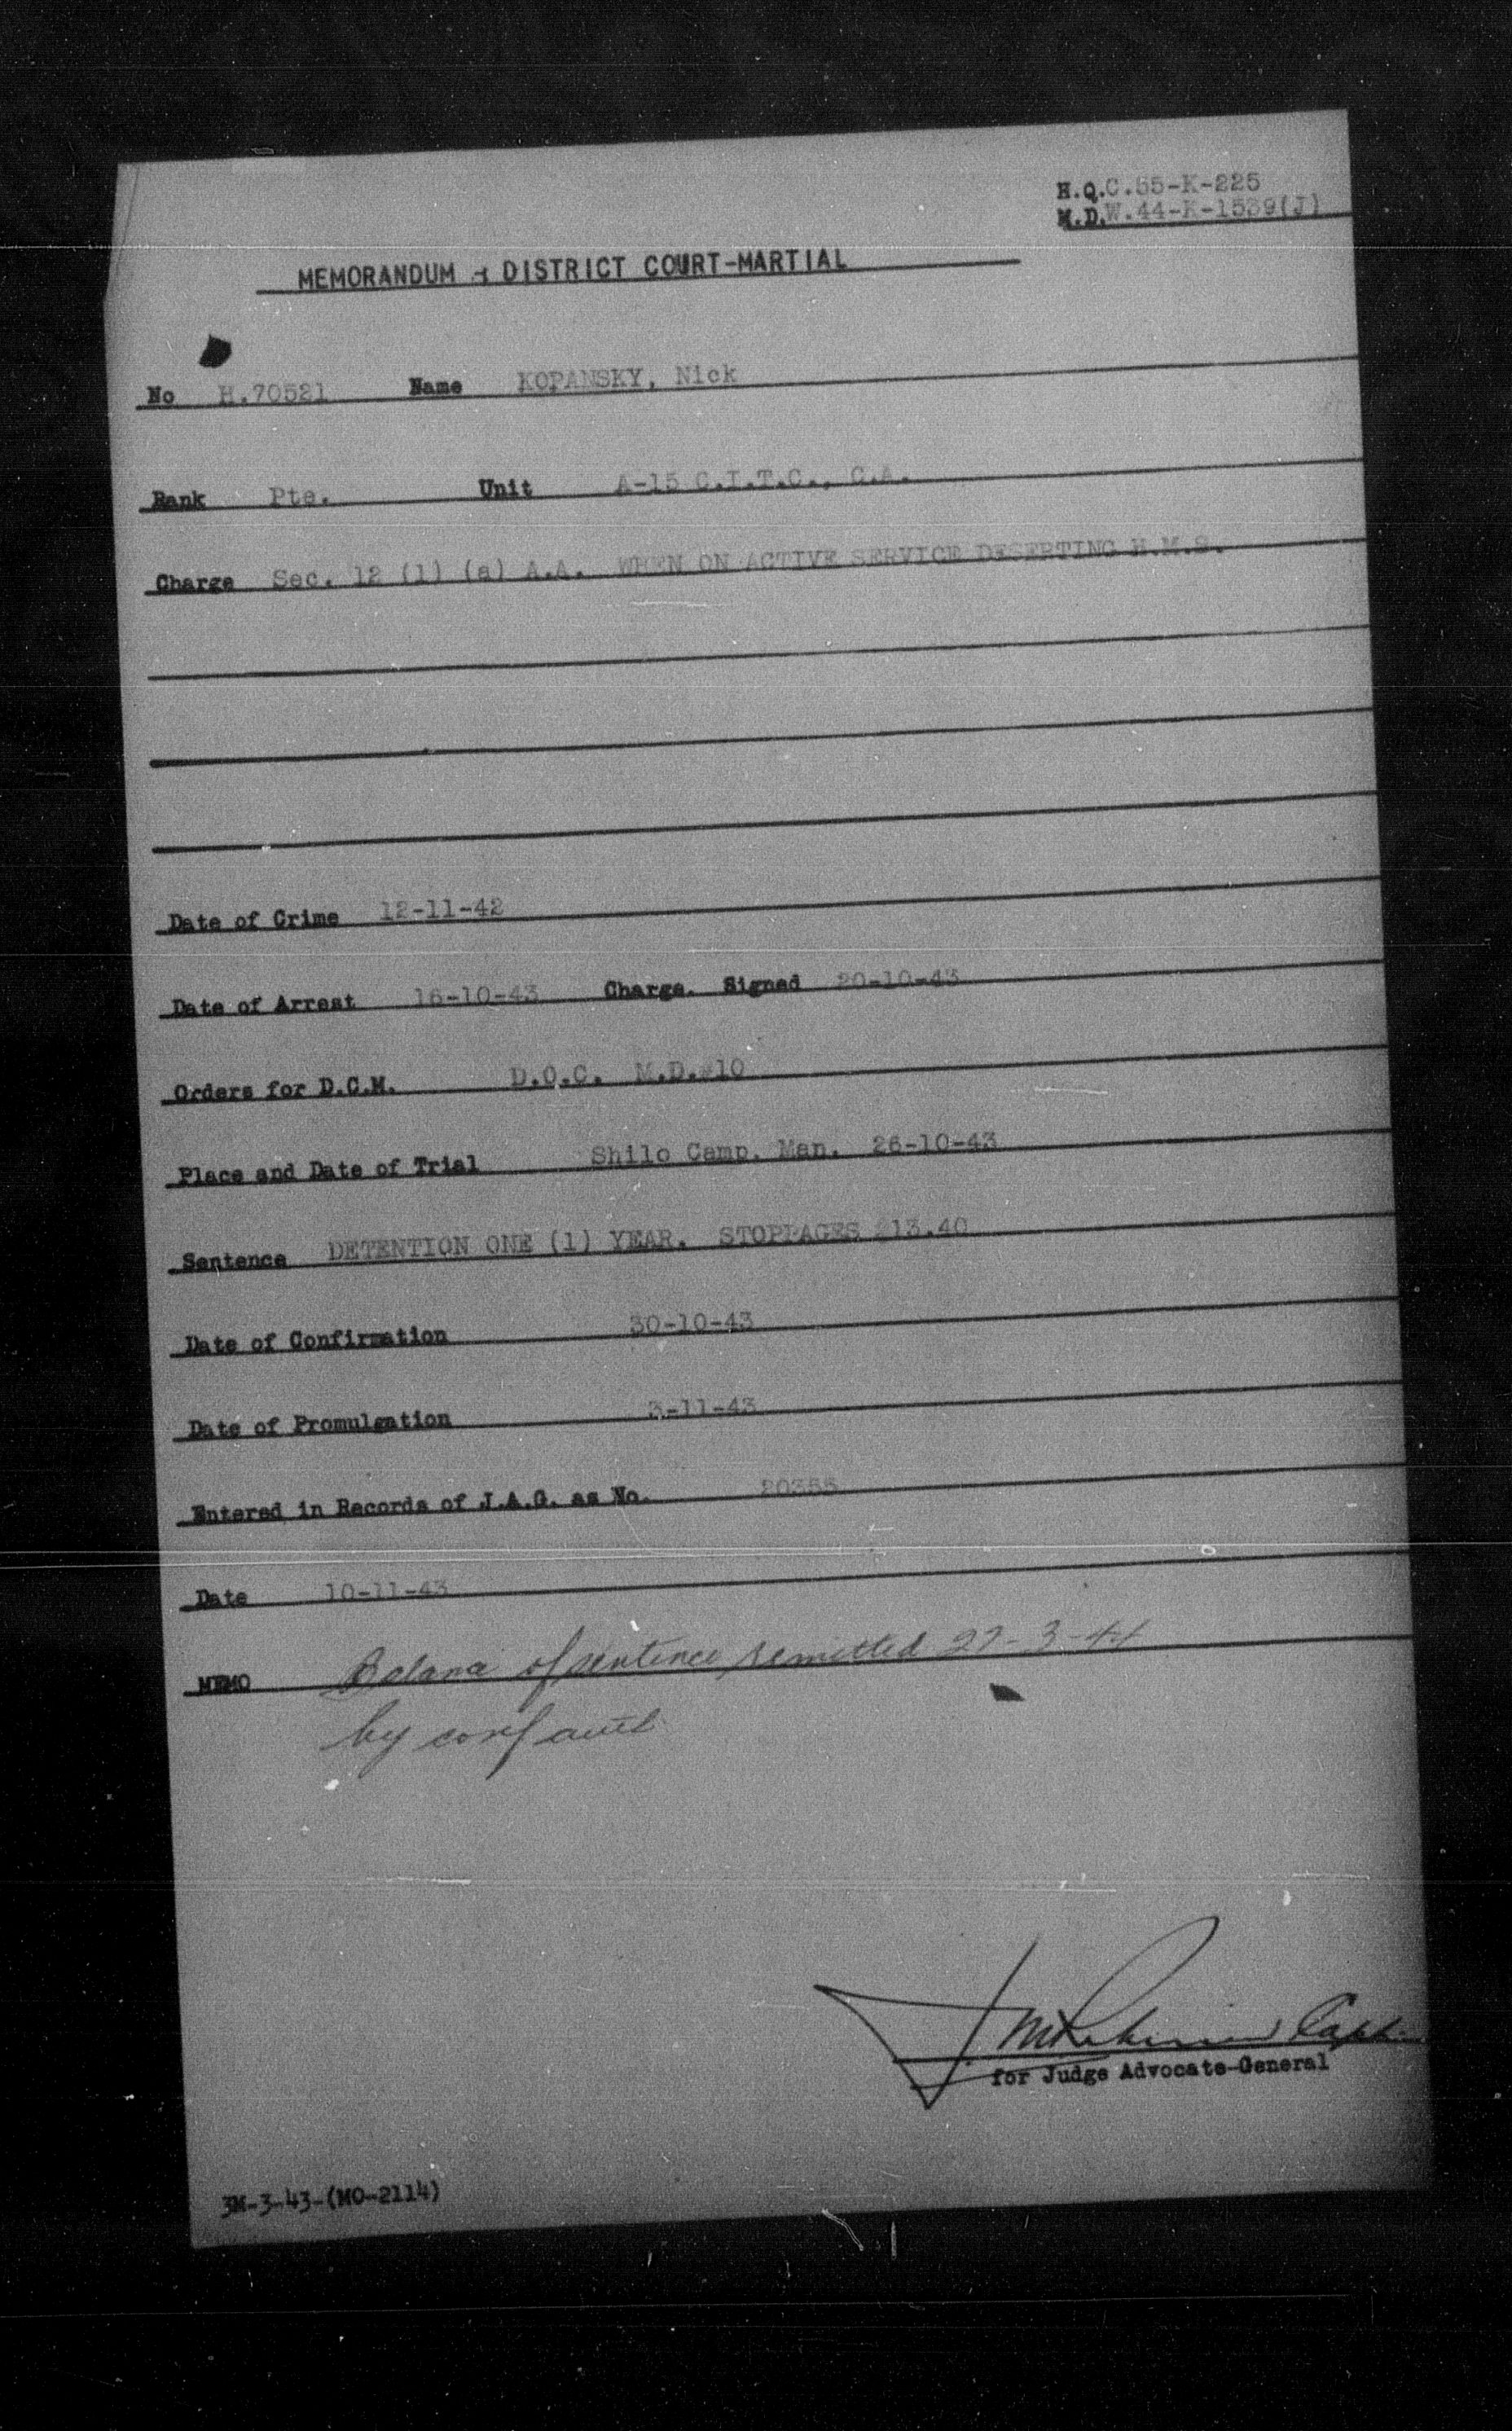 H.Q.C.55-K-225
M.D.W.44-K-1539(J)
MEMORANDUM - DISTRICT COURT-MARTIAL
No H.70521 Name KOPANSKY, Nick
Rank Pte. Unit A-15 C.I.T.C., C.A.
Charge Sec. 12 (1) (a) A.A. WHEN ON ACTIVE SERVICE DESERTING H.M.S.
Date of Crime 12-11-42
Date of Arrest 16-10-43 Charge. Signed 20-10-43
Orders for D.C.M. D.O.C. M.D.#10
Place and Date of Trial Shilo Camp. Man. 26-10-43
Sentence DETENTION ONE (1) YEAR. STOPPAGES 213.40
Date of Confirmation 30-10-43
Date of Promulgation 3-11-43
Entered in Records of J.A.G. as No. 20355
Date 10-11-43
MEMO Balance of sentence remitted 27-3-44
by conf auth
Capt.
for Judge Advocate-General
3M-3-43-(MO-2114)